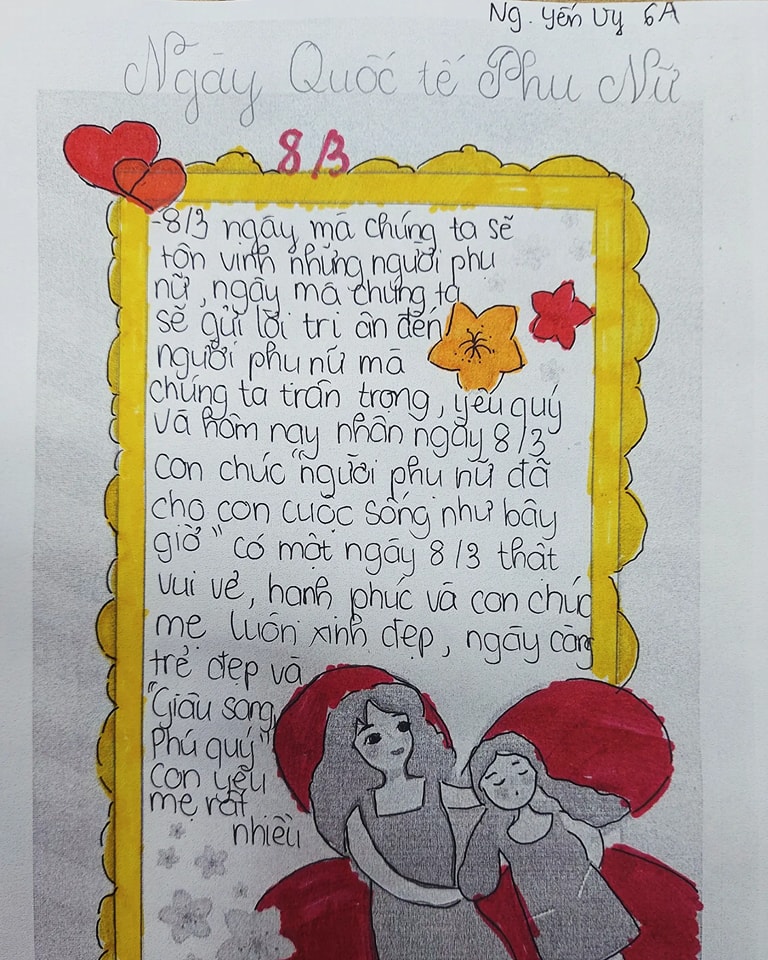 Ng. Yến Vy 6A
Ngày Quốc tế Phụ Nữ
8/3
-8/3 ngày mà chúng ta sẽ
tôn vinh những người phụ
nữ, ngày mà chúng ta
sẽ gửi lời tri ân đến
người phụ nữ mà
chúng ta trân trọng, yêu quý
và hôm nay nhân ngày 8/3
con chúc "người phụ nữ đã
cho con cuộc sống như bây
giờ" có một ngày 8/3 thật
vui vẻ, hạnh phúc và con chúc
mẹ luôn xinh đẹp, ngày càng
trẻ đẹp và
"Giàu sang
Phú quý"
con yêu
mẹ rất
nhiều